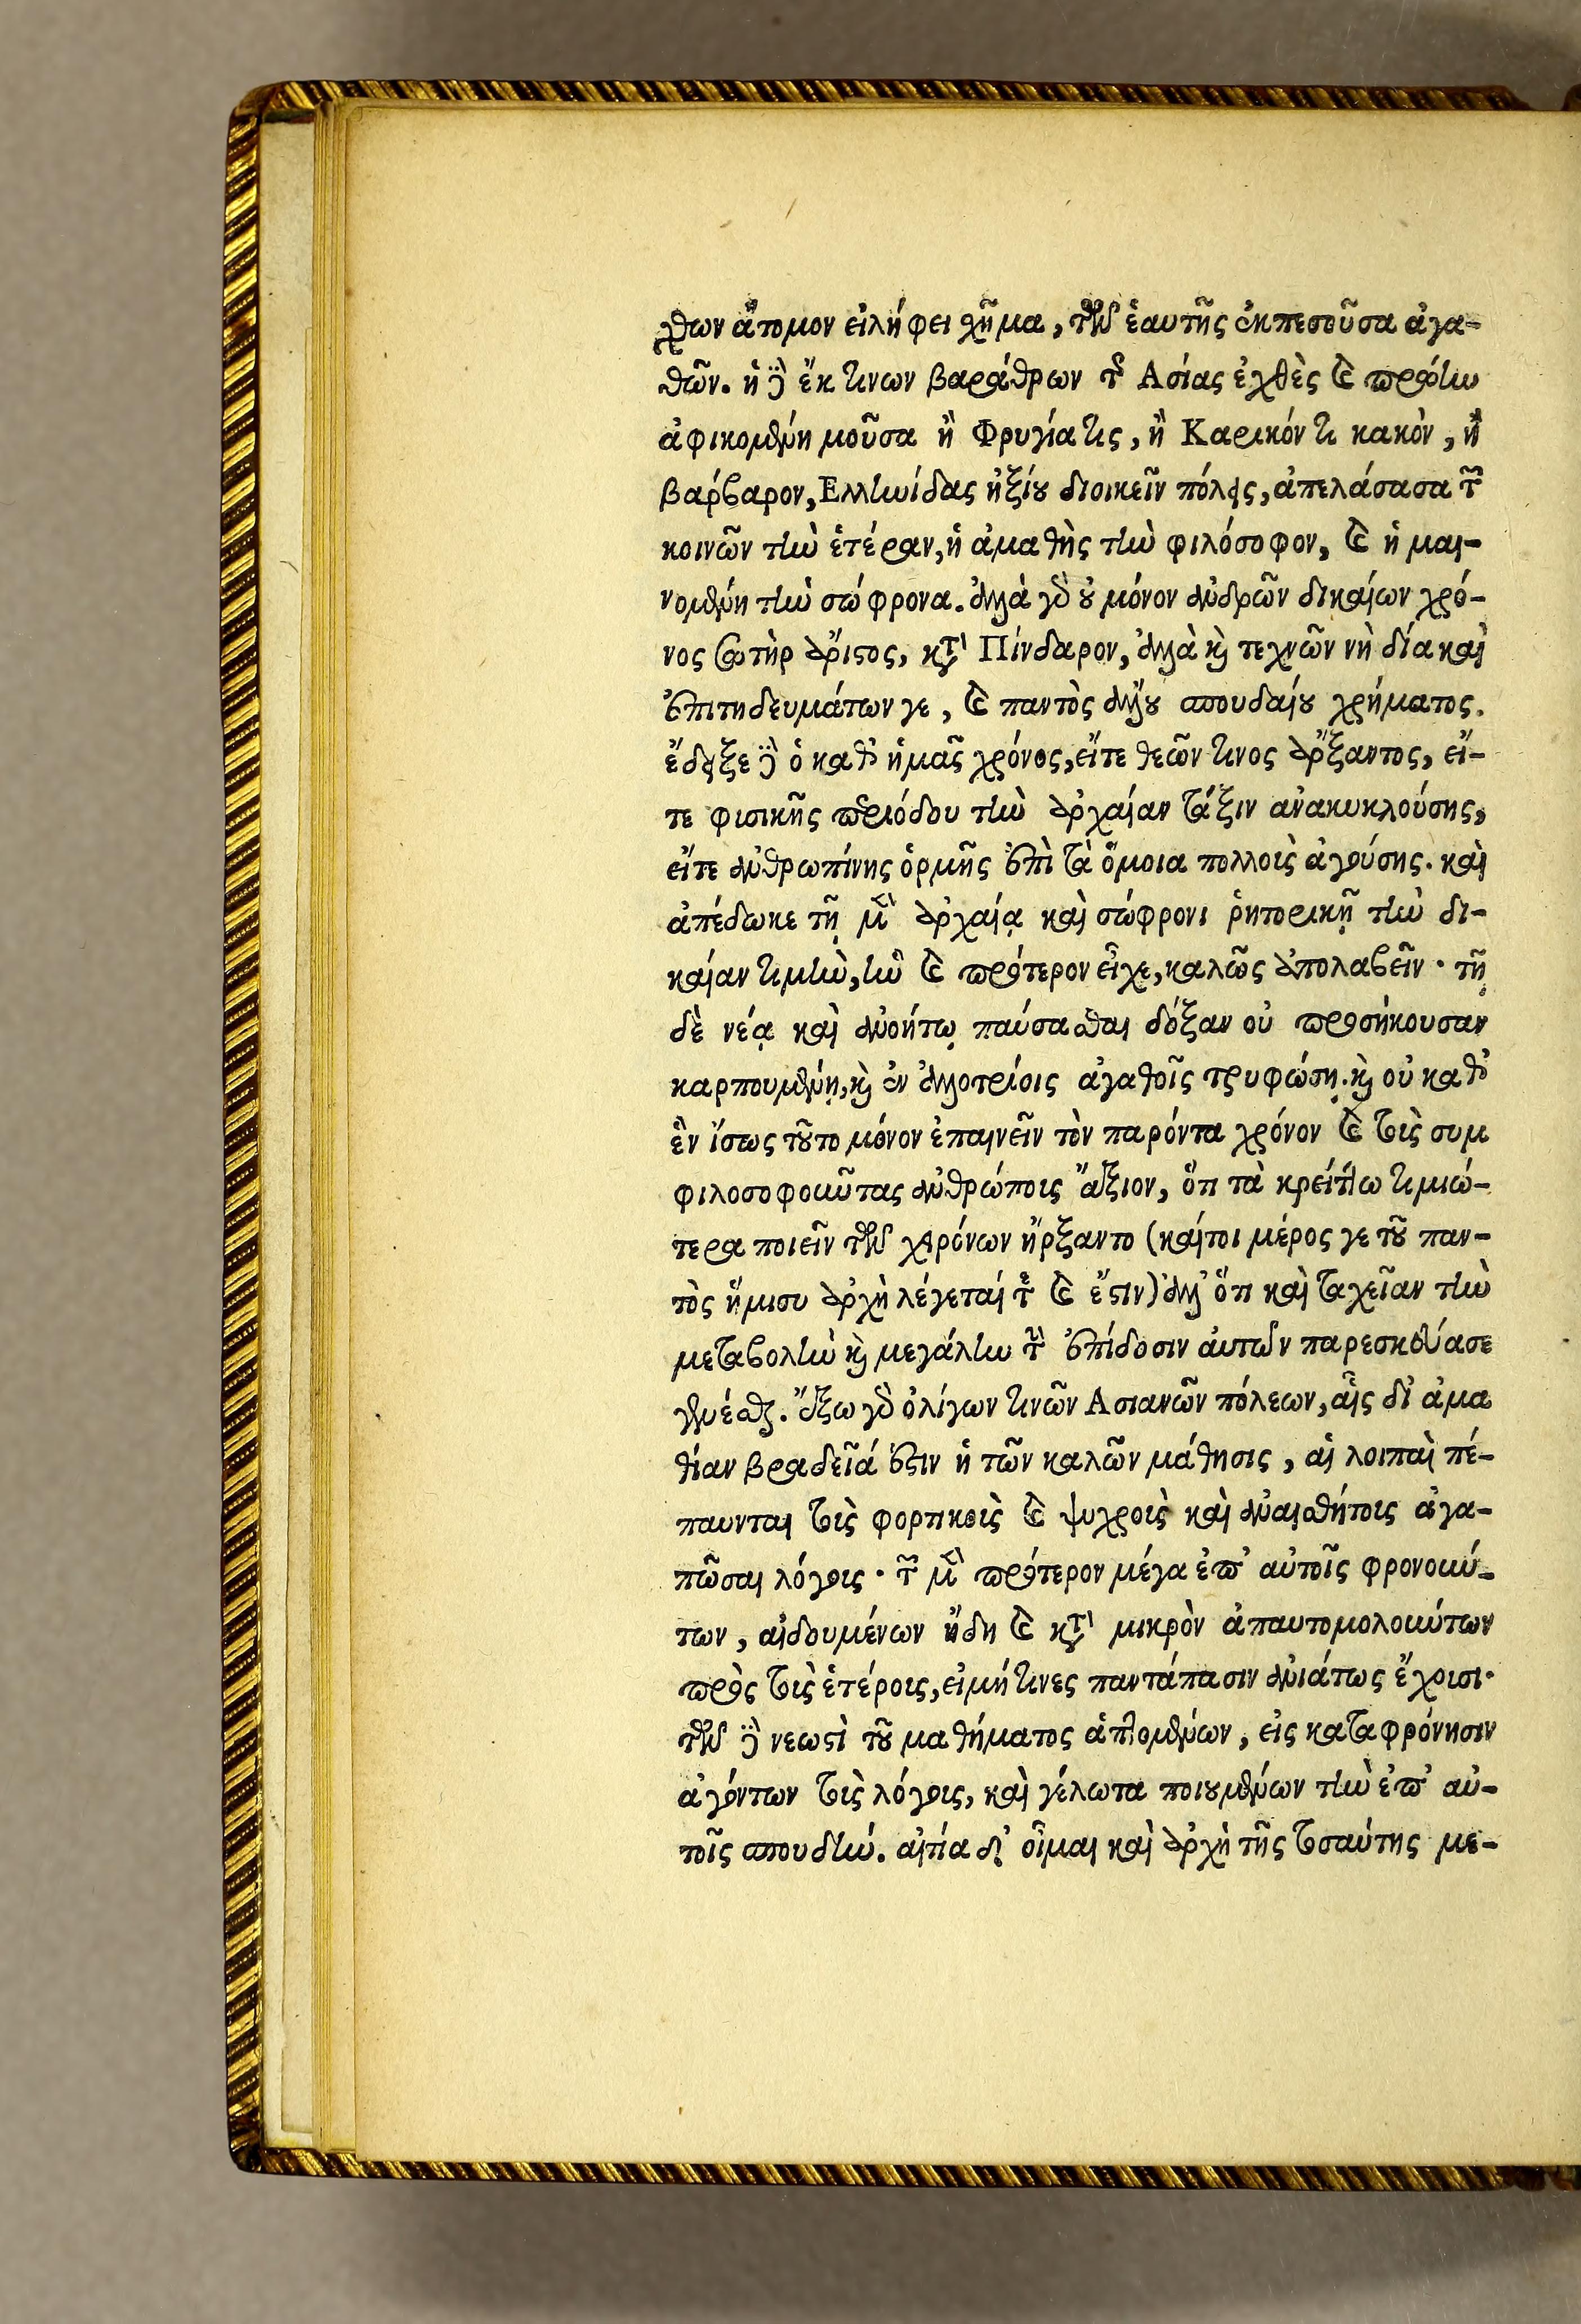 χθων ἄτομον εἰλήφει χῆμα, τῶν ἑαυτῆς ἐκπεσοῦσα ἀγα-
θῶν. ἡ δὲ ἔκ τινων βαράθρων τῆς Ἀσίας ἐχθὲς καὶ πρώην
ἀφικομένη μοῦσα ἢ Φρυγία τις, ἢ Καρικόν τι κακὸν, ἢ
βάρβαρον, Ἑλληνίδας ἠξίου διοικεῖν πόλεις, ἀπελάσασα τῶν
κοινῶν τὴν ἑτέραν, ἡ ἀμαθὴς τὴν φιλόσοφον, καὶ ἡ μαι-
νομένη τὴν σώφρονα. ἀλλὰ γὰρ οὐ μόνον ἀνδρῶν δικαίων χρό-
νος σωτὴρ ἄριστος, κατὰ Πίνδαρον, ἀλλὰ καὶ τεχνῶν νὴ δία καὶ
ἐπιτηδευμάτων γε, καὶ παντὸς ἄλλου σπουδαίου χρήματος.
ἔδειξε δὲ ὁ καθ' ἡμᾶς χρόνος, εἴτε θεῶν τινος ἄρξαντος, εἴ-
τε φισικῆς περιόδου τὴν ἀρχαίαν τάξιν ἀνακυκλούσης,
εἴτε ἀνθρωπίνης ὁρμῆς ἐπὶ τὰ ὅμοια πολλοὺς ἀγούσης. καὶ
ἀπέδωκε τῇ μὲν ἀρχαίᾳ καὶ σώφρονι ῥητορικῇ τὴν δι-
καίαν τιμὴν, ἣν καὶ πρότερον εἶχε, καλῶς ἀπολαβεῖν · τῇ
δὲ νέᾳ καὶ ἀνοήτῳ παύσασθαι δόξαν οὐ προσήκουσαν
καρπουμένῃ, καὶ ἐν ἀλλοτρίοις ἀγαθοῖς τρυφώσῃ. καὶ οὐ καθ'
ἓν ἴσως τοῦτο μόνον ἐπαινεῖν τὸν παρόντα χρόνον καὶ τοὺς συμ
φιλοσοφοῦντας ἀνθρώπους ἄξιον, ὅτι τὰ κρείττω τιμιώ-
τερα ποιεῖν τῶν χειρόνων ἤρξαντο (καίτοι μέρος γε τοῦ παν-
τὸς ἥμισυ ἀρχὴ λέγεταί τε καὶ ἔστιν) ἀλλ' ὅτι καὶ ταχεῖαν τὴν
μεταβολὴν καὶ μεγάλην τὴν ἐπίδοσιν αὐτῶν παρεσκεύασε
γενέσθαι. ἔξω γὰρ ὀλίγων τινῶν Ἀσιανῶν πόλεων, αἷς δι' ἀμα
θίαν βραδεῖά ἐστιν ἡ τῶν καλῶν μάθησις, αἱ λοιπαὶ πέ-
παυνται τοὺς φορτικοὺς καὶ ψυχροὺς καὶ ἀναισθήτους ἀγα-
πῶσαι λόγους · τῶν μὲν πρότερον μέγα ἐπ' αὐτοῖς φρονούν-
των, αἰδουμένων ἤδη καὶ κατὰ μικρὸν ἀπαυτομολούντων
πρὸς τοὺς ἑτέρους, εἰ μή τινες παντάπασιν ἀνιάτως ἔχουσι·
τῶν δὲ νεωστὶ τοῦ μαθήματος ἁπτομένων, εἰς καταφρόνησιν
ἀγόντων τοὺς λόγους, καὶ γέλωτα ποιουμένων τὴν ἐπ' αὐ-
τοῖς σπουδήν. αἰτία δ' οἶμαι καὶ ἀρχὴ τῆς τοσαύτης με-